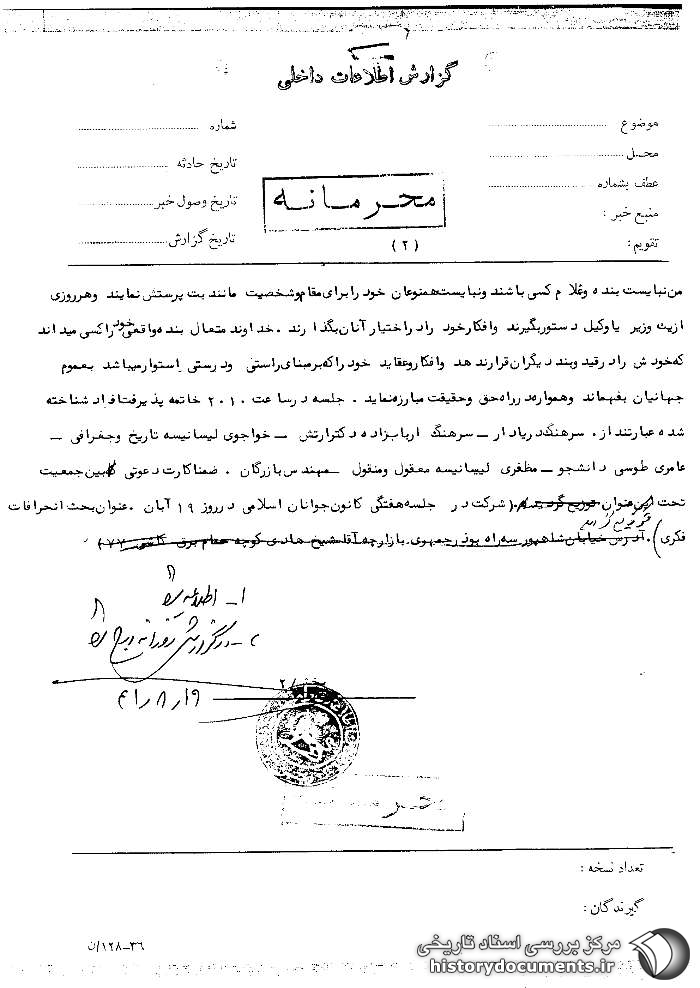 گزارش اطلاعات داخلی
موضوع
شماره
محل
تاریخ حادثه
عطف بشماره
تاریخ وصول خبر
منبع خبر :
تاریخ گزارش
تقویم :
محرمانه
(۲)
من نبایست بنده وغلام کسی باشند ونبایست همنوعان خود را برای مقام وشخصیت مانند بت پرستش نمایند وهرروزی
ازیت وزیر یا وکیل دستور بگیرند وافکارخود راد راختیار آنان بگذارند . خداوند متعال بنده واقعی خود راکسی میداند
که خودش راد رقید وبند دیگران قرارندهد وافکار وعقاید خود راکه برمبنای راستی ودرستی استوار میباشد بعموم
جهانیان بفهماند وهمواره در راه حق وحقیقت مبارزه نماید . جلسه درساعت ۲۰۱۰ خاتمه پذیرفت افراد شناخته
شده عبارتند از . سرهنگ دریادار ـ سرهنگ اربابزاده دکترارتش ـ خواجوی لیسانسیه تاریخ وجغرافی ـ
عامری طوسی دانشجو ـ مظفری لیسانسیه معقول ومنقول ـ مهندس بازرگان . ضمنا کارت دعوتی بین جمعیت
تحت این عنوان توزیع گردید . (شرکت در جلسه هفتگی کانون جوانان اسلامی درروز ۱۹ آبان . عنوان بحث انحرافات
توزیع گردید
فکری) . آدرس خیابان شاهپور سه راه بوذرجمهوری بازارچه آقا شیخ هادی کوچه حمام برق کاشی ۷۷)
۱ـ اطلاعیه
۲ـ در گزارش روزانه درج
۴۱/۸/۱۹
تعداد نسخه :
گیرندگان :
۳۶-۱۲۸/ن
مرکز بررسی اسناد تاریخی
historydocuments.ir